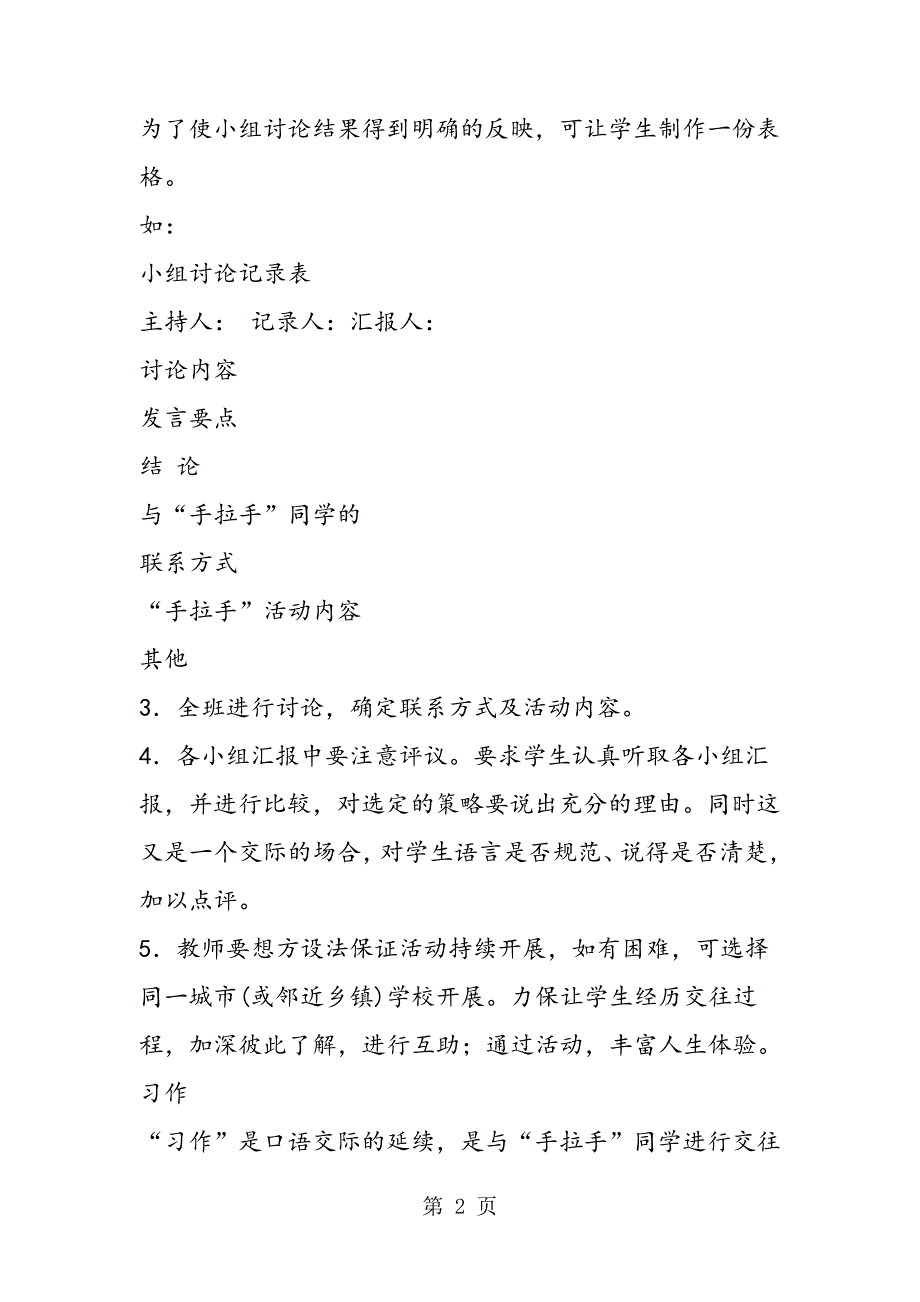 为了使小组讨论结果得到明确的反映，可让学生制作一份表
格。
如：
小组讨论记录表
主持人： 记录人：汇报人：
讨论内容
发言要点
结 论
与“手拉手”同学的
联系方式
“手拉手”活动内容
其他
3．全班进行讨论，确定联系方式及活动内容。
4．各小组汇报中要注意评议。要求学生认真听取各小组汇
报，并进行比较，对选定的策略要说出充分的理由。同时这
又是一个交际的场合，对学生语言是否规范、说得是否清楚，
加以点评。
5．教师要想方设法保证活动持续开展，如有困难，可选择
同一城市(或邻近乡镇)学校开展。力保让学生经历交往过
程，加深彼此了解，进行互助；通过活动，丰富人生体验。
习作
“习作”是口语交际的延续，是与“手拉手”同学进行交往
第 2 页